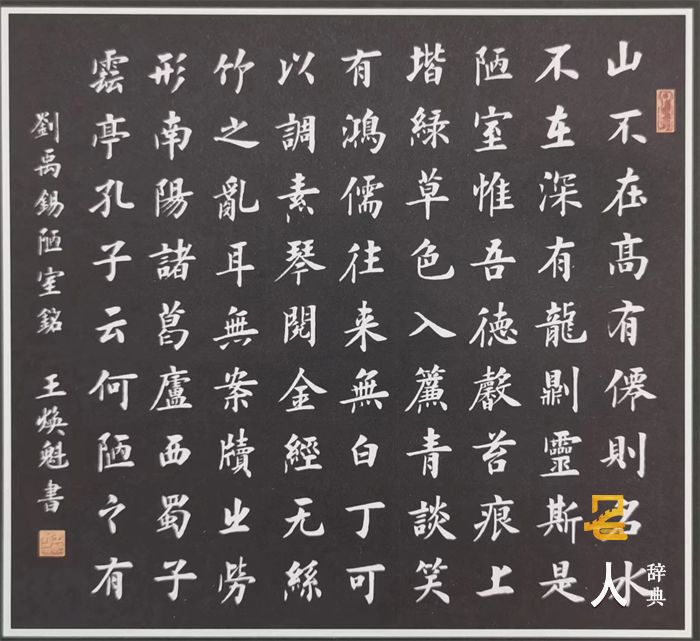 山不在髙有僊則名水
不在深有龍𠟭靈斯是
陋室惟吾德馨苔痕上
堦綠草色入簾青談笑
有鴻儒往来無白丁可
以調素琴閱金經无絲
竹之亂耳無案牘㞢勞
形南陽諸葛廬西蜀子
雲亭孔子云何陋之有
劉禹錫陋室銘 王煥魁書
名人辞典